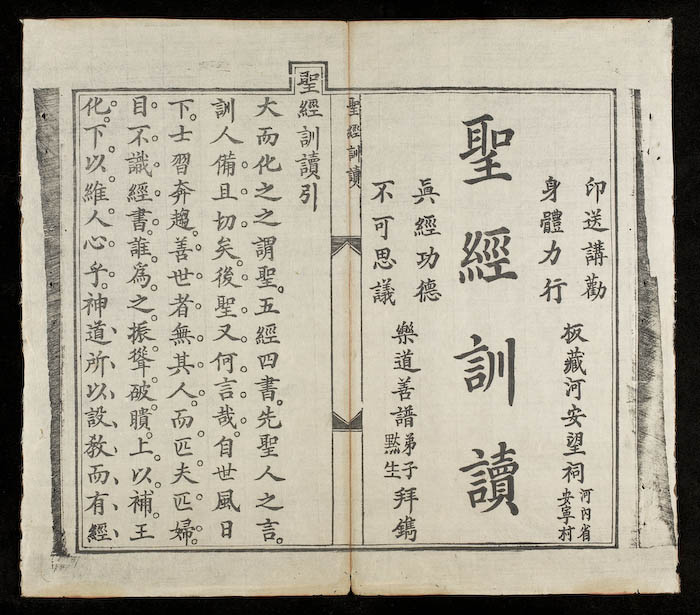 印送講勸
身體力行
板藏河安望祠
河內省
安寧村
聖經訓讀
眞經功德
不可思議
樂道善譜弟子黙生拜鐫
聖經訓讀
聖經訓讀引
大而化之之謂聖。五經四書。先聖人之言。
訓人備且切矣。後聖又何言哉。自世風日
下。士習奔趨。善世者無其人。而匹夫匹婦。
目不識經書。誰爲之振聾破聵。上以補王
化。下以維人心乎。神道所以設敎而有經